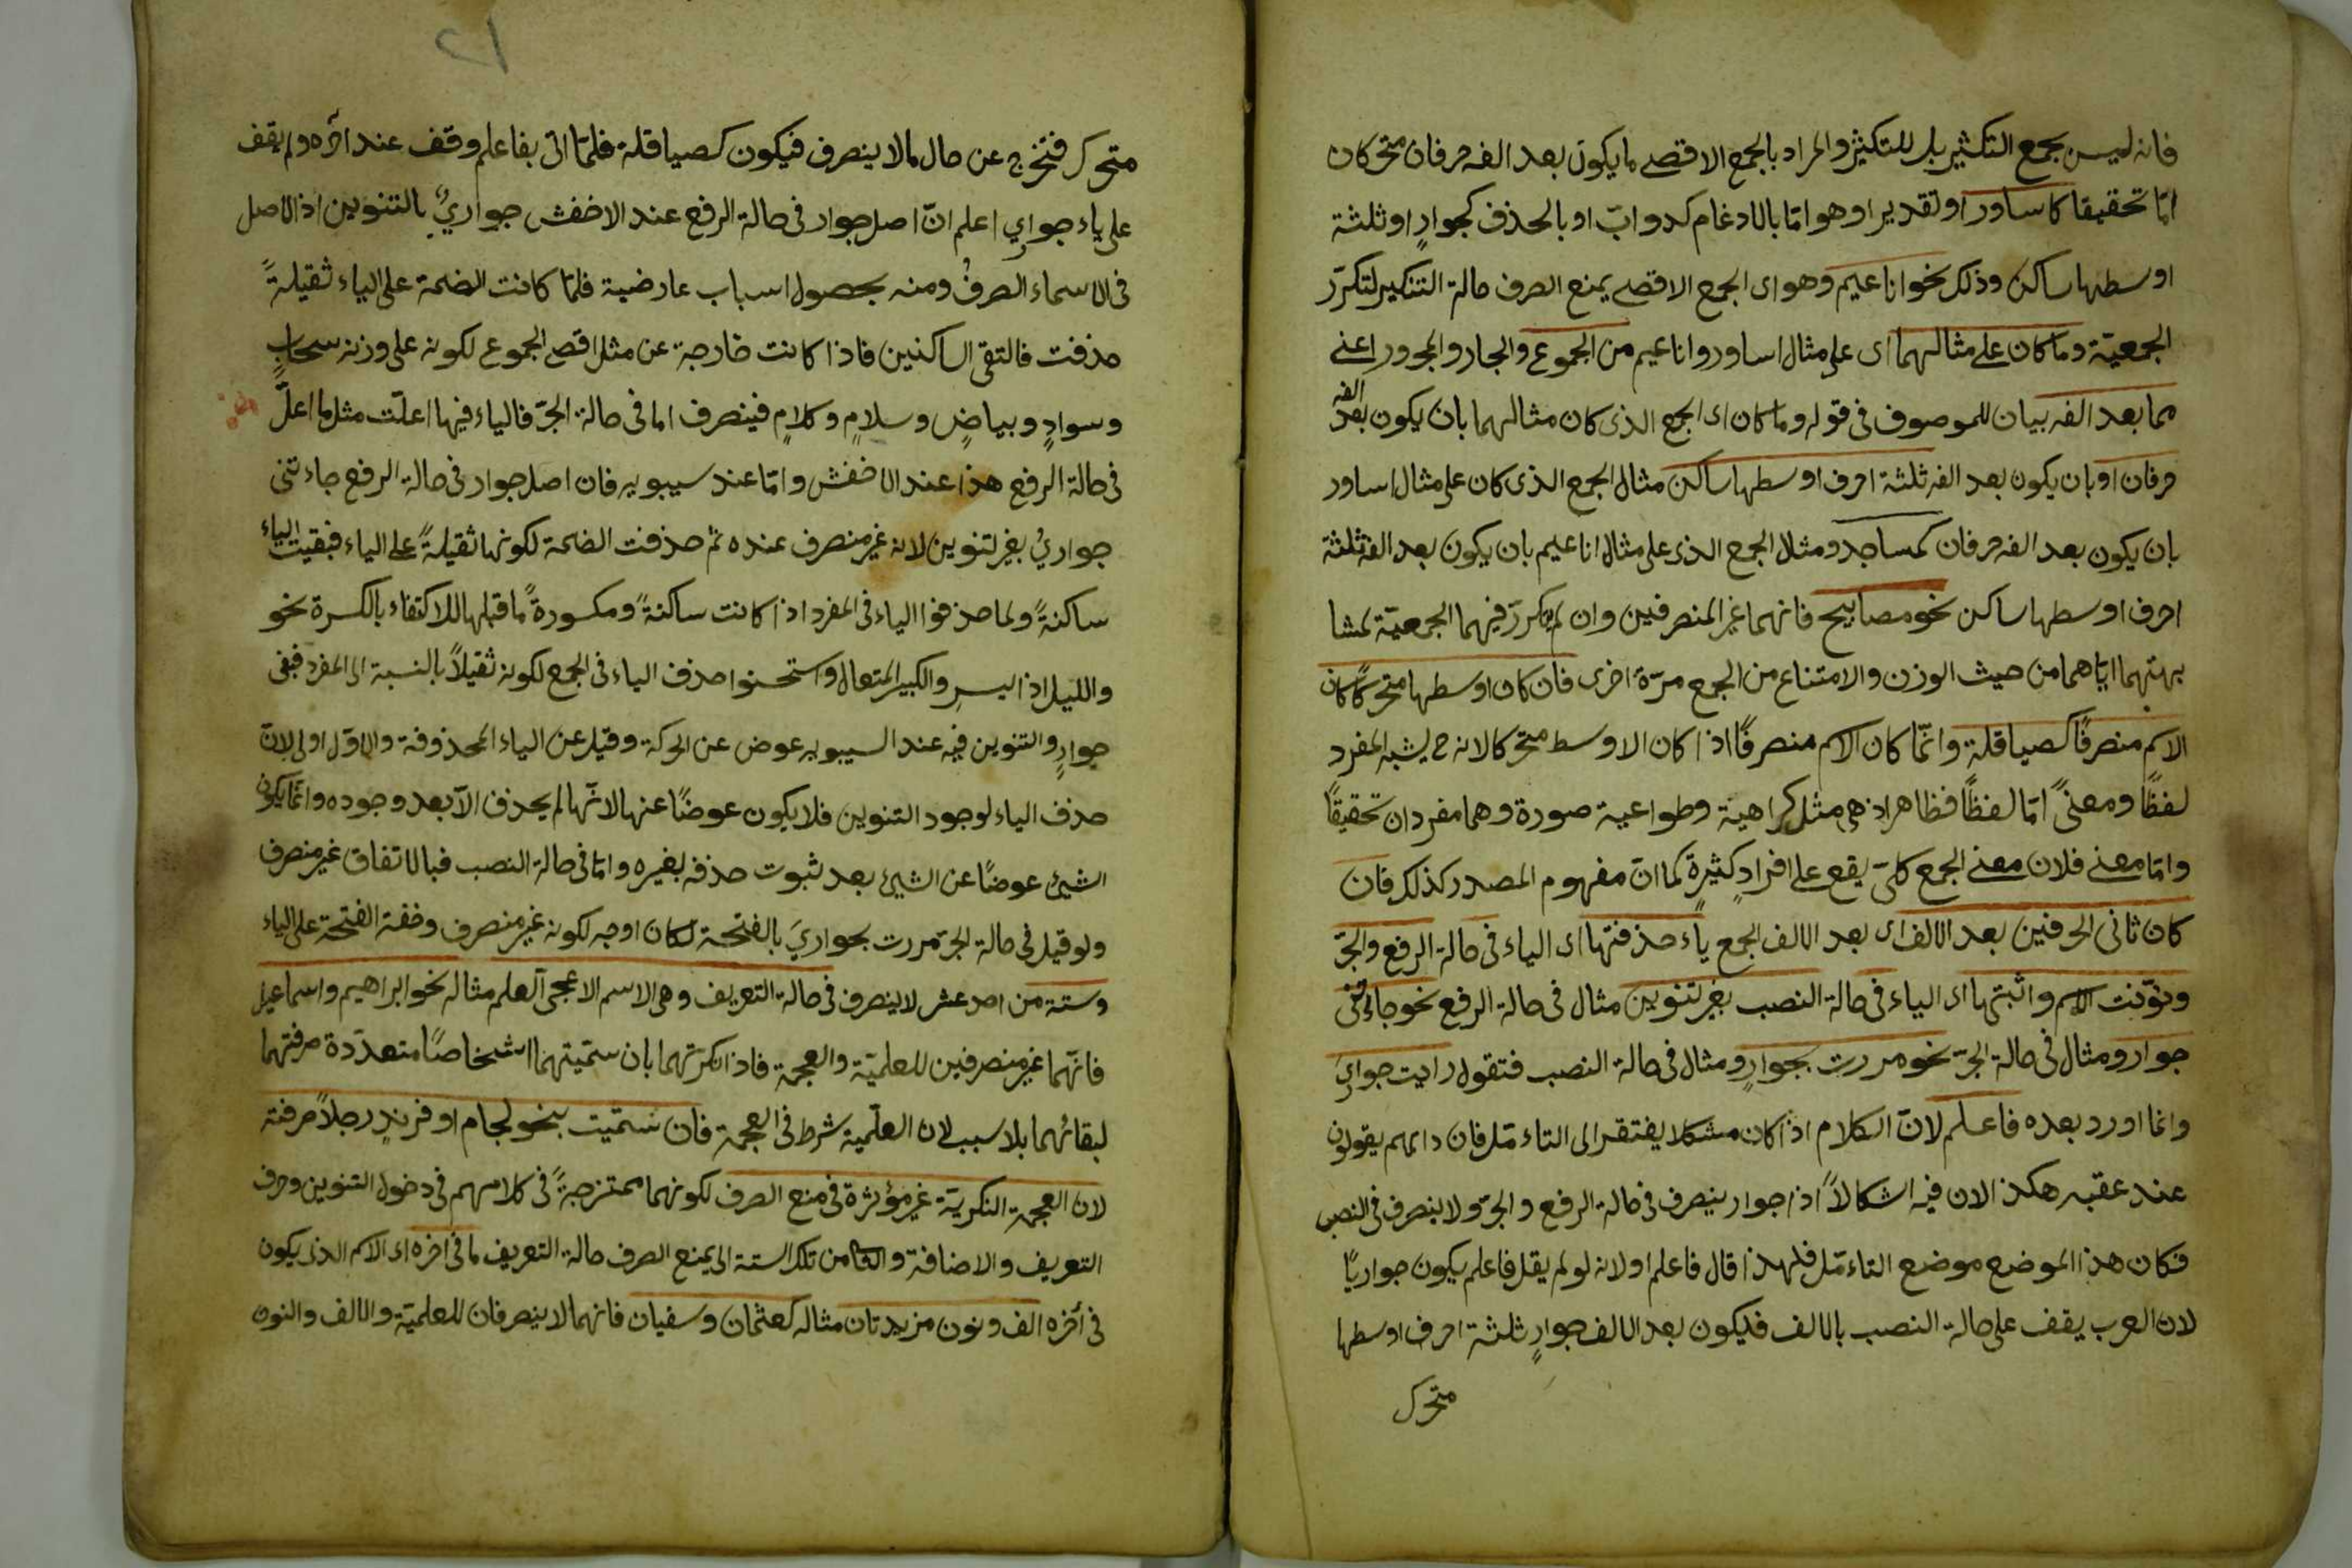 فانه ليس بجمع التكثير بل للتكثير والمراد بالجمع الاقصے ما يكون بعد الفه حرفان متحركان
امّا تحقيقا كاساور او تقديرا وهو امّا بالادغام كدوابّ او بالحذف كجوارٍ او ثلثة
اوسطها ساكن وذلك نحو اناعيم وهو اى الجمع الاقصے يمنع الصرف حالة التنكير لتكرّر
الجمعيّة وما كان علے مثالهما اى على مثال اساور واناعيم من الجموع والجار والمجرور اعنے
مما بعد الفه بيان للموصوف فى قوله وما كان اى الجمع الذى كان مثالهما بان يكون بعد الفه
حرفان او بان يكون بعد الفه ثلثة احرف اوسطها ساكن مثال الجمع الذى كان على مثال اساور
بان يكون بعد الفه حرفان كمساجد ومثال الجمع الذى على مثال اناعيم بان يكون بعد الفه ثلثة
احرف اوسطها ساكن نحو مصابيح فانهما غير المنصرفين وان لم يكرّر فيهما الجمعيّة لمشا
بهتهما ايّاهما من حيث الوزن والامتناع من الجمع مرّة اخرى فان كان اوسطها متحرّكًا كان
الاسم منصرفًا كصياقلة وانّما كان الاسم منصرفًا اذا كان الاوسط متحركا لانه ح يشبه المفرد
لفظًا ومعنىً امّا لفظًا فظاهر اذ هى مثل كراهية وطواعية صورة وهما مفردان تحقيقًا
وامّا معنے فلان معنے الجمع كلىّ يقع علے افرادٍ كثيرةٍ كما انّ مفهوم المصدر كذلك فان
كان ثانى الحرفين بعد الالف اى بعد الالف الجمع ياء حذفتها اى الياء فى حالة الرفع والجرّ
ونوّنت الاسم واثبتها اى الياء فى حالة النصب بغير تنوين مثال فى حالة الرفع نحو جاءتنى
جوار ومثال فى حالة الجرّ نحو مررت بجوارٍ ومثال فى حالة النصب فتقول رايت جوارىَ
وانما اورد بعده فاعلم لانّ الكلام اذا كان مشكلا يفتقر الى التاءمّل فان دابهم يقولون
عند عقبه هكذ الان فيه اشكالاً اذا جوار ينصرف فى حالة الرفع والجرّ ولا ينصرف فى النصب
فكان هذا الموضع موضع التاءمّل فلهذا قال فاعلم او لانه لو لم يقل فاعلم يكون جواريًا
لان العرب يقف على حالة النصب بالالف فيكون بعد الالف جوارٍ ثلثة احرف اوسطها
متحرك
متحرك فتخرج عن حال مالا ينصرف فيكون كصياقلة فلمّا اتى بفاعلم وقف عند اخره ولم يقف
على ياء جوارى اعلم انّ اصل جوار فى حالة الرفع عند الاخفش جوارىٌ بالتنوين اذ الاصل
فى الاسماء الصرف ومنه بحصول اسباب عارضية فلمّا كانت الضمة على الياء ثقيلةً
حذفت فالتقى الساكنين فاذا كانت خارجة عن مثل اقصى الجموع لكونه على وزنه سحابٍ
وسوادٍ وبياضٍ وسلامٍ وكلامٍ فينصرف اما فى حالة الجرّ فالياء فيها اعلّت مثل ما اعلّ
فى حالة الرفع هذا عند الاخفش وامّا عند سيبويه فان اصل جوار فى حالة الرفع جاءتنى
جوارىُ بغير تنوين لانه غير منصرف عنده ثم حذفت الضمة لكونها ثقيلةً على الياء فبقيت الياء
ساكنةً ولما حذفوا الياء فى المفرد اذا كانت ساكنةً ومكسورةً ما قبلها للاكتفاء بالكسرة نحو
والليل اذا يسرِ والكبير المتعال واستحسنوا حذف الياء فى الجمع لكونه ثقيلاً بالنسبة الى المفرد فبقى
جوارٍ والتنوين فيه عند السيبويه عوض عن الحركة وقيل عن الياء المحذوفة والاوّل اولى لانّ
حذف الياء لوجود التنوين فلا يكون عوضًا عنها لانّها لم يحذف الّا بعد وجوده وانّما يكون
الشيئ عوضًا عن الشيئ بعد ثبوت حذفه بغيره وامّا فى حالة النصب فبالاتفاق غير منصرف
ولو قيل فى حالة الجرّ مررت بجوارىَ بالفتحة لكان اوجه لكونه غير منصرف وخفة الفتحة على الياء
وستة من احد عشر لا ينصرف فى حالة التعريف وهى الاسم الاعجمى العلم مثاله نحو ابراهيم واسماعيل
فانّهما غير منصرفين للعلميّة والعجمة فاذا نكرتهما بان سمّيتهما اشخاصًا متعدّدة صرفتهما
لبقائهما بلا سبب لان العلّمية شرط فى العجمة فان سمّيت بنحو لجام او فرندٍ رجلاً صرفته
لان العجمة النكريّة غير مؤثرة فى منع الصرف لكونهما ممتزجةً فى كلامهم فى دخول التنوين وحرف
التعريف والاضافة والثامن تلك الستة الى يمنع الصرف حالة التعريف ما فى اخره اى الاسم الذى يكون
فى آخره الف ونون مزيدتان مثاله كعثمان وسفيان فانهما لا ينصرفان للعلميّة والالف والنون